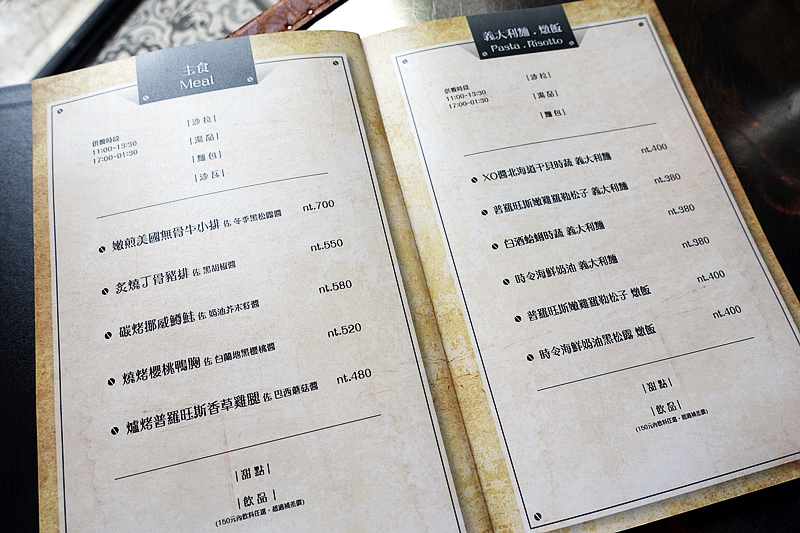 主食
Meal
供餐時段
11:00-13:30
17:00-01:30
|沙拉|
|湯品|
|麵包|
|沙瓦|
嫩煎美國無骨牛小排 佐 冬季黑松露醬 nt.700
炙燒丁骨豬排 佐 黑胡椒醬 nt.550
碳烤挪威鱒鮭 佐 奶油芥末籽醬 nt.580
燒烤櫻桃鴨胸 佐 白蘭地黑櫻桃醬 nt.520
爐烤普羅旺斯香草雞腿 佐 巴西蘑菇醬 nt.480
|甜點|
|飲品|
(150元內飲料任選，超過補差價)
義大利麵．燉飯
Pasta . Risotto
供餐時段
11:00-13:30
17:00-01:30
|沙拉|
|湯品|
|麵包|
XO醬北海道干貝時蔬 義大利麵 nt.400
普羅旺斯嫩雞羅勒松子 義大利麵 nt.380
白酒蛤蜊時蔬 義大利麵 nt.380
時令海鮮奶油 義大利麵 nt.380
普羅旺斯嫩雞羅勒松子 燉飯 nt.400
時令海鮮奶油黑松露 燉飯 nt.400
|甜點|
|飲品|
(150元內飲料任選，超過補差價)